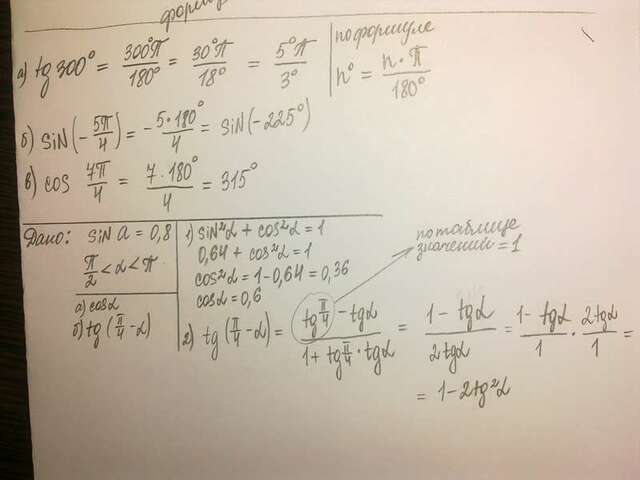 форму
а) tg 300° = 300°π/180° = 30°π/18° = 5°π/3°
по формуле
n° = n·π/180°
б) sin(-5π/4) = -5·180°/4 = sin(-225°)
в) cos 7π/4 = 7·180°/4 = 315°
Дано: sin α = 0,8
π/2 < α < π
а) cosα
б) tg(π/4 - α)
1) sin²α + cos²α = 1
0,64 + cos²α = 1
cos²α = 1 - 0,64 = 0,36
cosα = 0,6
по таблице
значений = 1
2) tg(π/4 - α) = tg π/4 - tgα/1 + tg π/4 · tgα = 1 - tgα/2tgα = 1 - tgα/1 · 2tgα/1 =
= 1 - 2tg²α